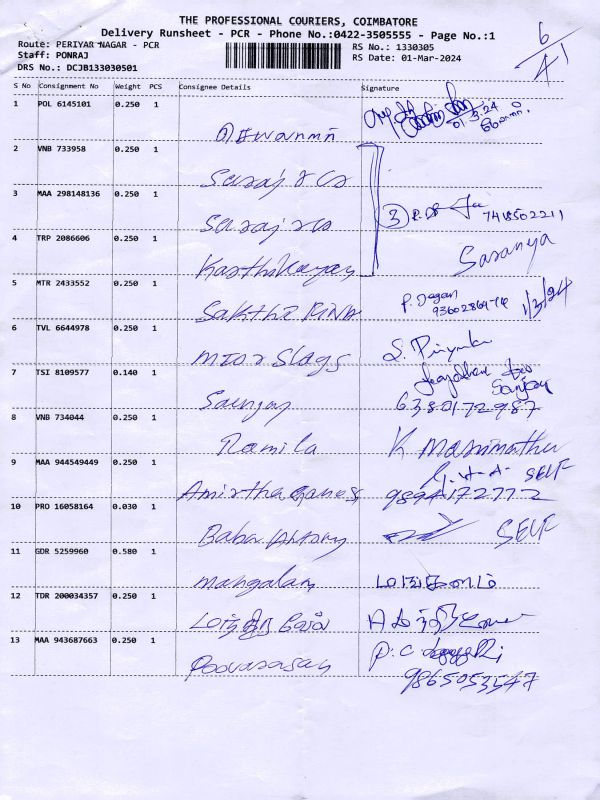 THE PROFESSIONAL COURIERS, COIMBATORE
Delivery Runsheet - PCR - Phone No.:0422-3505555 - Page No.:1
Route: PERIYAR NAGAR - PCR
Staff: PONRAJ
DRS No.: DCJB133030501
RS No.: 1330305
RS Date: 01-Mar-2024
6/41
S No Consignment No Weight PCS Consignee Details Signature
1 POL 6145101 0.250 1
01.3.24
2 VNB 733958 0.250 1 Saraj
3 MAA 298148136 0.250 1 Saraj
3
7418502211
4 TRP 2086606 0.250 1 Karthikeyan Saranya
5 MTR 2433552 0.250 1 Sakthi P. Jagan
1/3/24
6 TVL 6644978 0.250 1 S. Priyanka
7 TSI 8109577 0.140 1 Sanjay Sanjay
6380172987
8 VNB 734044 0.250 1 Ramila K
9 MAA 944549449 0.250 1 Amirtha Ganes SELF
9894172772
10 PRO 16058164 0.030 1 Baba Antony SELF
11 GDR 5259960 0.580 1 Mangalam மங்களம்
12 TDR 200034357 0.250 1
13 MAA 943687663 0.250 1 Poovarasan P. C
9865053547